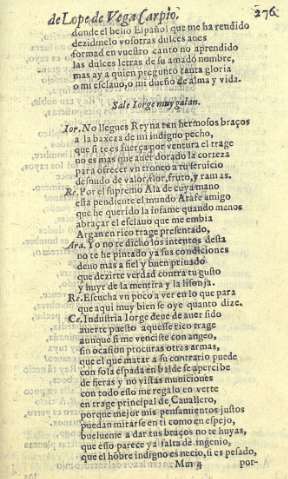 de Lope de Vega Carpio. 276
donde el bello Español que me ha rendido
dezidmelo vosotras dulces aues
formad en vuestro canto no aprendido
las dulces letras de su amado nombre,
mas ay a quien pregunto tanta gloria
o mi esclauo, o mi dueño de alma y vida.
Sale Iorge muy galan.
Ior. No llegues Reyna tan hermosos braços
a la baxeza de mi indigno pecho,
que si te esfuerça por ventura el trage
no es mas que auer dorado la corteza
para ofrecer vn tronco a tu seruicio
desnudo de valor, flor, fruto, y ramas.
Re. Por el supremo Ala de cuya mano
esta pendiente el mundo Arafe amigo
que he querido la infame quando menos
abraçar el esclauo que me embia
Argan en rico trage presentado,
Ara. Yo no te dicho los intentos desta
no te he pintado ya sus condiciones
deuo mas a fiel y buen priuado
que dezirte verdad contra tu gusto
y huyr de la mentira y la lisonja.
Re. Escucha vn poco a ver en lo que para
que aqui muy bien se oye quanto dize.
Ce. Industria Iorge deue de auer sido
auerte puesto aquesse rico trage
aunque si me venciste con angeo,
sin ocasion procuras otras armas,
que el que matar a su contrario puede
con sola espada en balde se apercibe
de fieras y no vistas municiones
con todo esso me regalo en verte
en trage principal de Cauallero,
porque mejor mis pensamientos justos
puedan mirarse en ti como en espejo,
buelueme a dar tus braços no te huyas,
que esso parece ya falta de ingenio,
que el hõbre indigno es necio, si es pesado,
Mm 4 por-